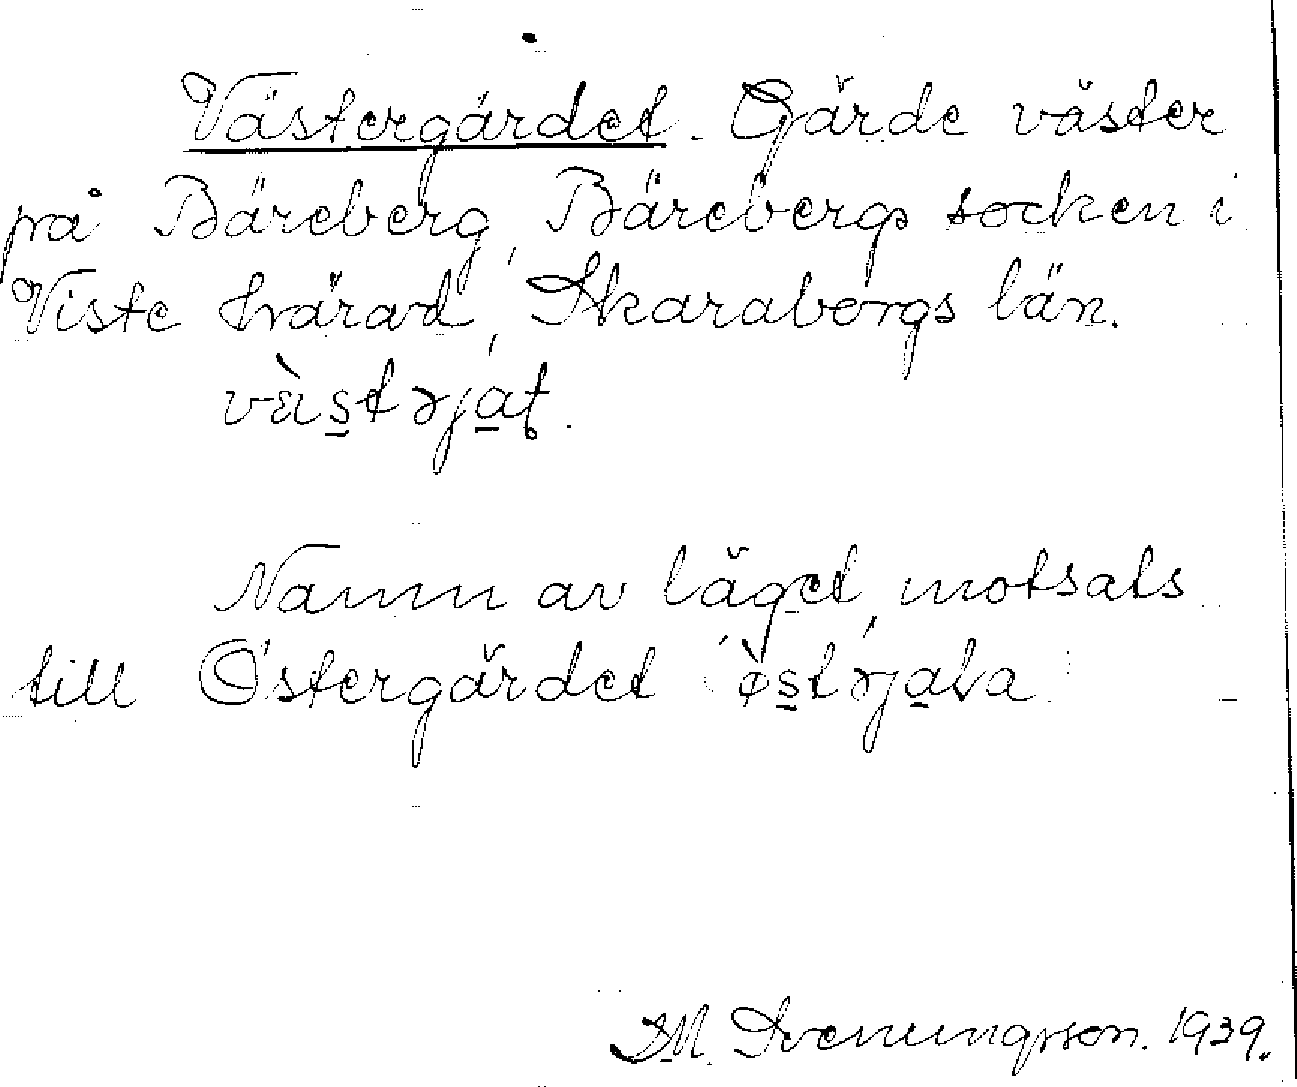 Västergärdet. Gärde väster
på Bäreberg, Bärebergs socken i
Viste härad, Skaraborgs län.
vä̀s̲tərja̲t.
Namn av läget, motsats
till Östergärdet
Svenungsson. 1939.